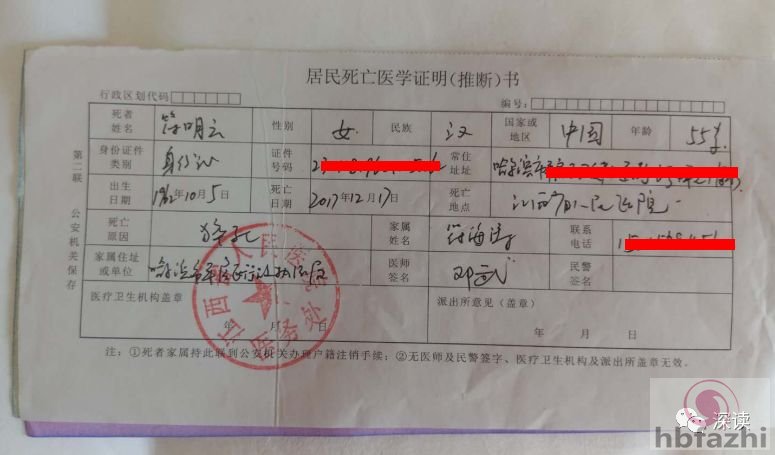 居民死亡医学证明(推断)书
行政区划代码 编号:
死者姓名 符明云 性别 女 民族 汉 国家或地区 中国 年龄 55岁
身份证件类别 身份证 证件号码 常住址址 哈尔滨市
出生日期 1962年10月5日 死亡日期 2017年12月17日 死亡地点 江西省人民医院
死亡原因 猝死 家属姓名 联系电话
家属住址或单位 哈尔滨市 医师签名 邓武 民警签名
医疗卫生机构盖章 派出所意见(盖章)
年 月 日 年 月 日
注:①死者家属持此联到公安机关办理户籍注销手续;②无医师及民警签字、医疗卫生机构及派出所盖章无效。
第二联 公安机关保存
江西省人民医院
医务处
深读
hbfazhi